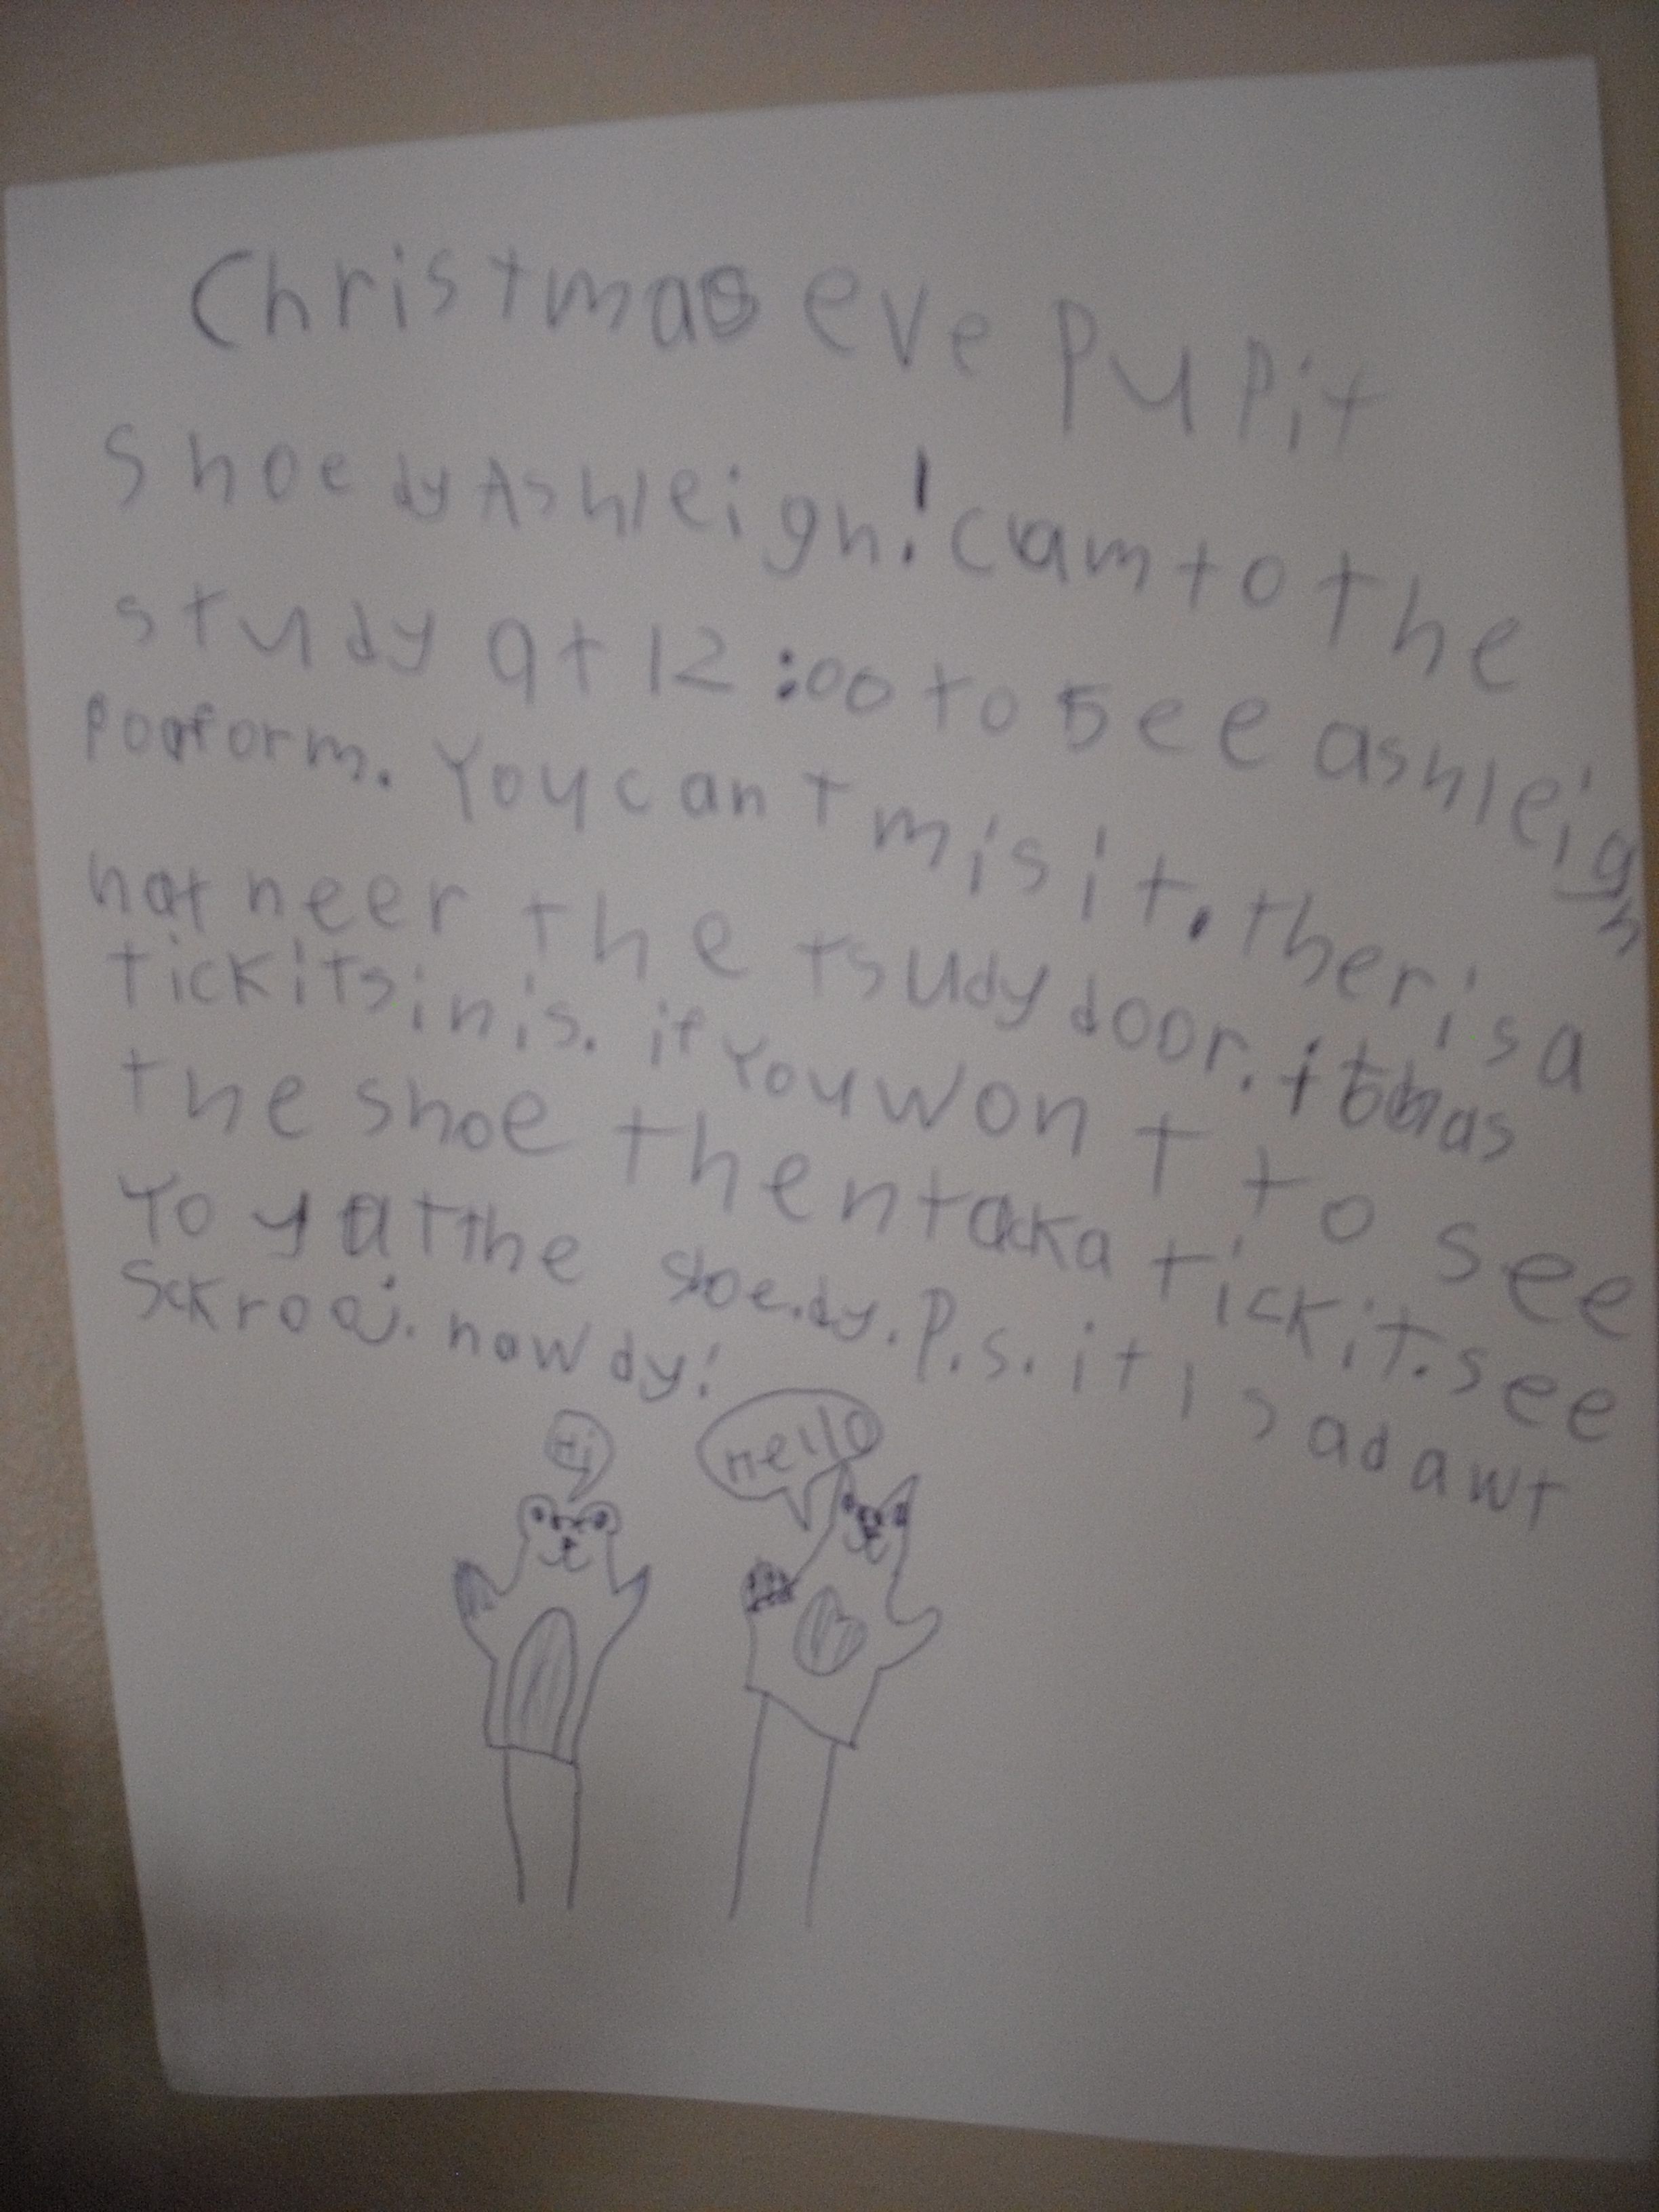 Christmas eve Pupit
Shoedy Ashleigh! cam to the
study at 12:00 to see ashleigh
poaform. You can t mis it. ther is a
hat neer the tsudy door. it has
tickits in is. if You wont to see
the shoe then taka tickit. see
Yo y at the shoe.dy. P.s. it is adawt
Sckrooj. howdy!
Hi
Hello